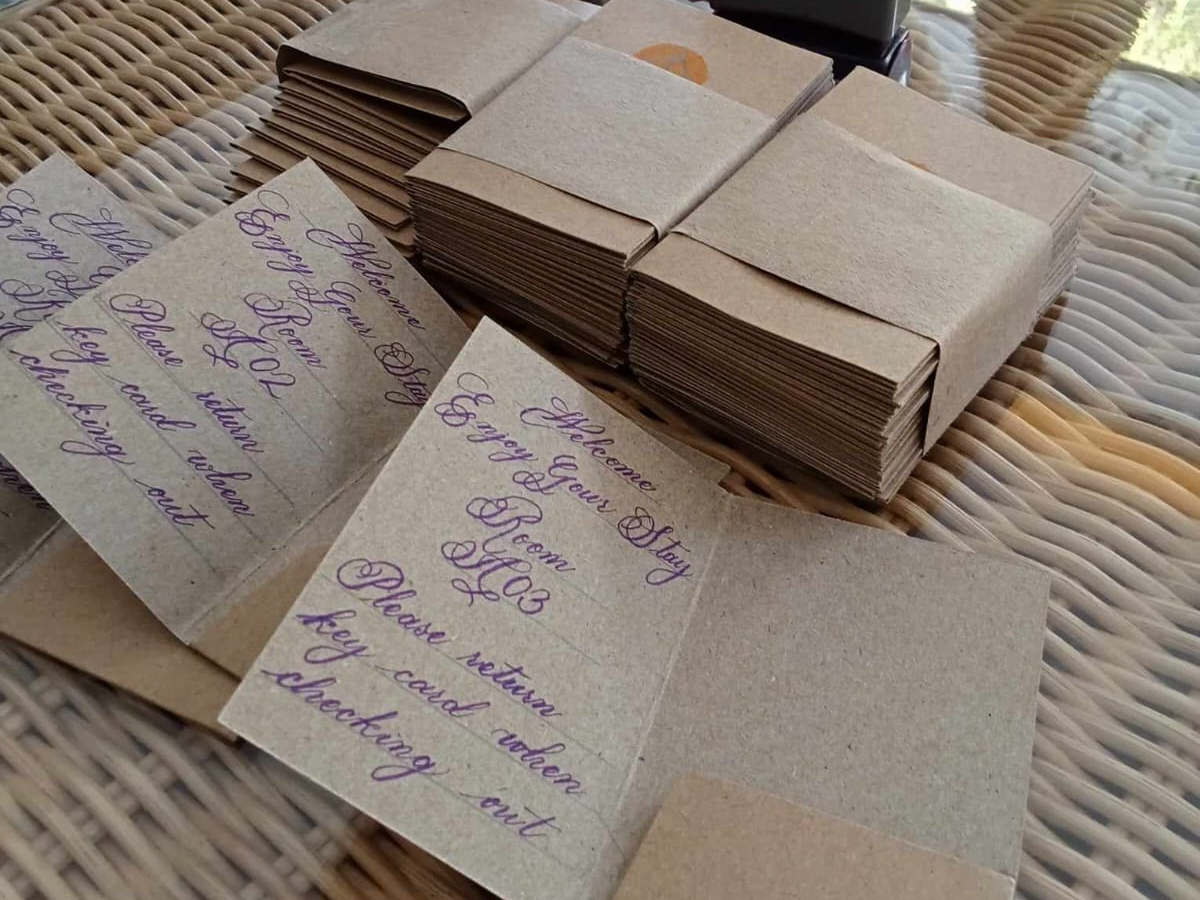 Enjoy
Welcome
Enjoy Your Stay
Room
A02
Please return
key card when
checking out
Welcome
Enjoy Your Stay
Room
A03
Please return
key card when
checking out